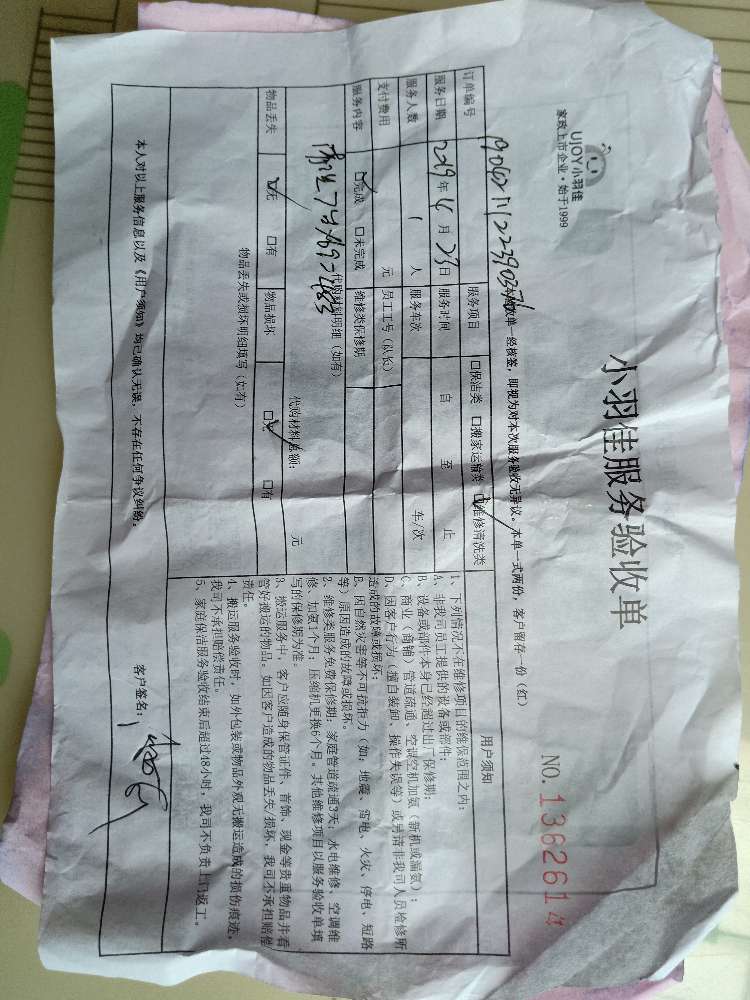 UJOY小羽佳
家政上市企业·始于1999
小羽佳服务验收单
NO. 1362614
本验收单一经核签,即视为对本次服务验收无异议。本单一式两份,客户留存一份(红)
订单编号
服务项目 □保洁类 □搬家运输类 ☑维修清洗类
服务日期 2019年4月23日 服务时间 自 至 止
服务人数 1 人 服务车次 车/次
支付费用 元 员工工号(队长)
服务内容 ☑完成 □未完成 维修类保修期
代购材料明细(如有)
代购材料总额: 元
物品丢失 ☑无 □有 物品损坏 ☑无 □有
物品丢失或损坏明细填写(如有)
用户须知
1、下列情况不在维修项目的维保范围之内:
A、非我司员工提供的设备或部件;
B、设备或部件本身已经超过出厂保修期;
C、商业(商铺)管道疏通、空调空机加氨(新机或漏氨);
D、因客户行为(擅自装卸、操作失误等)或另请非我司人员检修所
造成的故障或损坏;
E、因自然灾害等不可抗拒力(如:地震、雷电、火灾、停电、短路
等)原因造成的故障或损坏。
2、维修类服务免费保修期:家庭管道疏通3天;水电维修、空调维
修、加氨1个月;压缩机更换6个月。其他维修项目以服务验收单填
写的保修期为准。
3、搬运服务中,客户应随身保管证件、首饰、现金等贵重物品并看
管好搬运的物品。如因客户造成的物品丢失/损坏,我司不承担赔偿
责任。
4、搬运服务验收时,如外包装或物品外观无搬运造成的损伤痕迹,
我司不承担赔偿责任。
5、家庭保洁服务验收结束后超过48小时,我司不负责上门返工。
本人对以上服务信息以及《用户须知》均已确认无误,不存在任何争议纠纷。
客户签名: